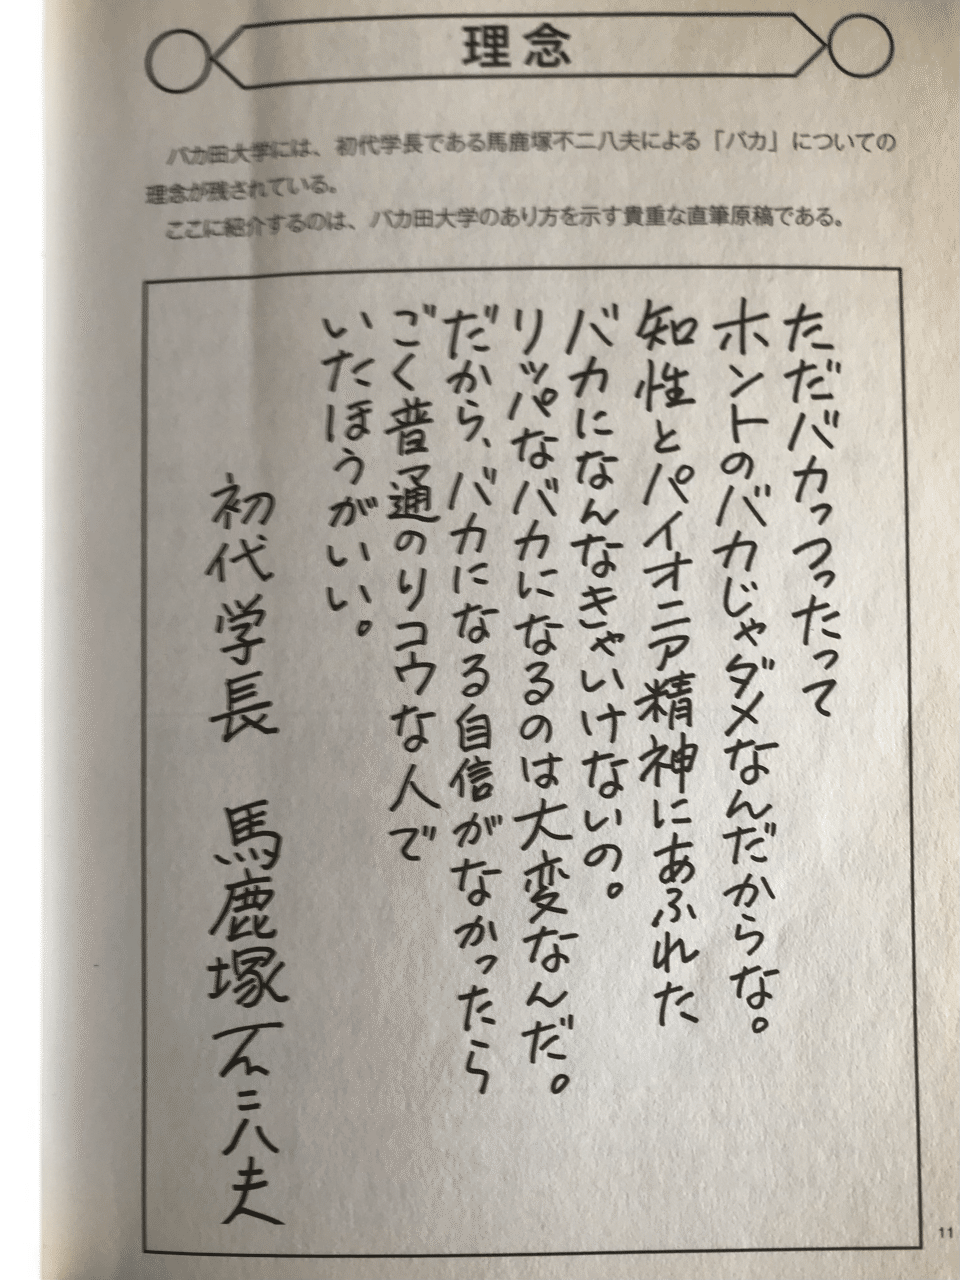 理念
バカ田大学には、初代学長である馬鹿塚不二八夫による「バカ」についての
理念が残されている。
ここに紹介するのは、バカ田大学のあり方を示す貴重な直筆原稿である。
ただバカっつったって
ホントのバカじゃダメなんだからな。
知性とパイオニア精神にあふれた
バカになんなきゃいけないの。
リッパなバカになるのは大変なんだ。
だから、バカになる自信がなかったら
ごく普通のリコウな人で
いたほうがいい。
初代学長 馬鹿塚不二八夫
11